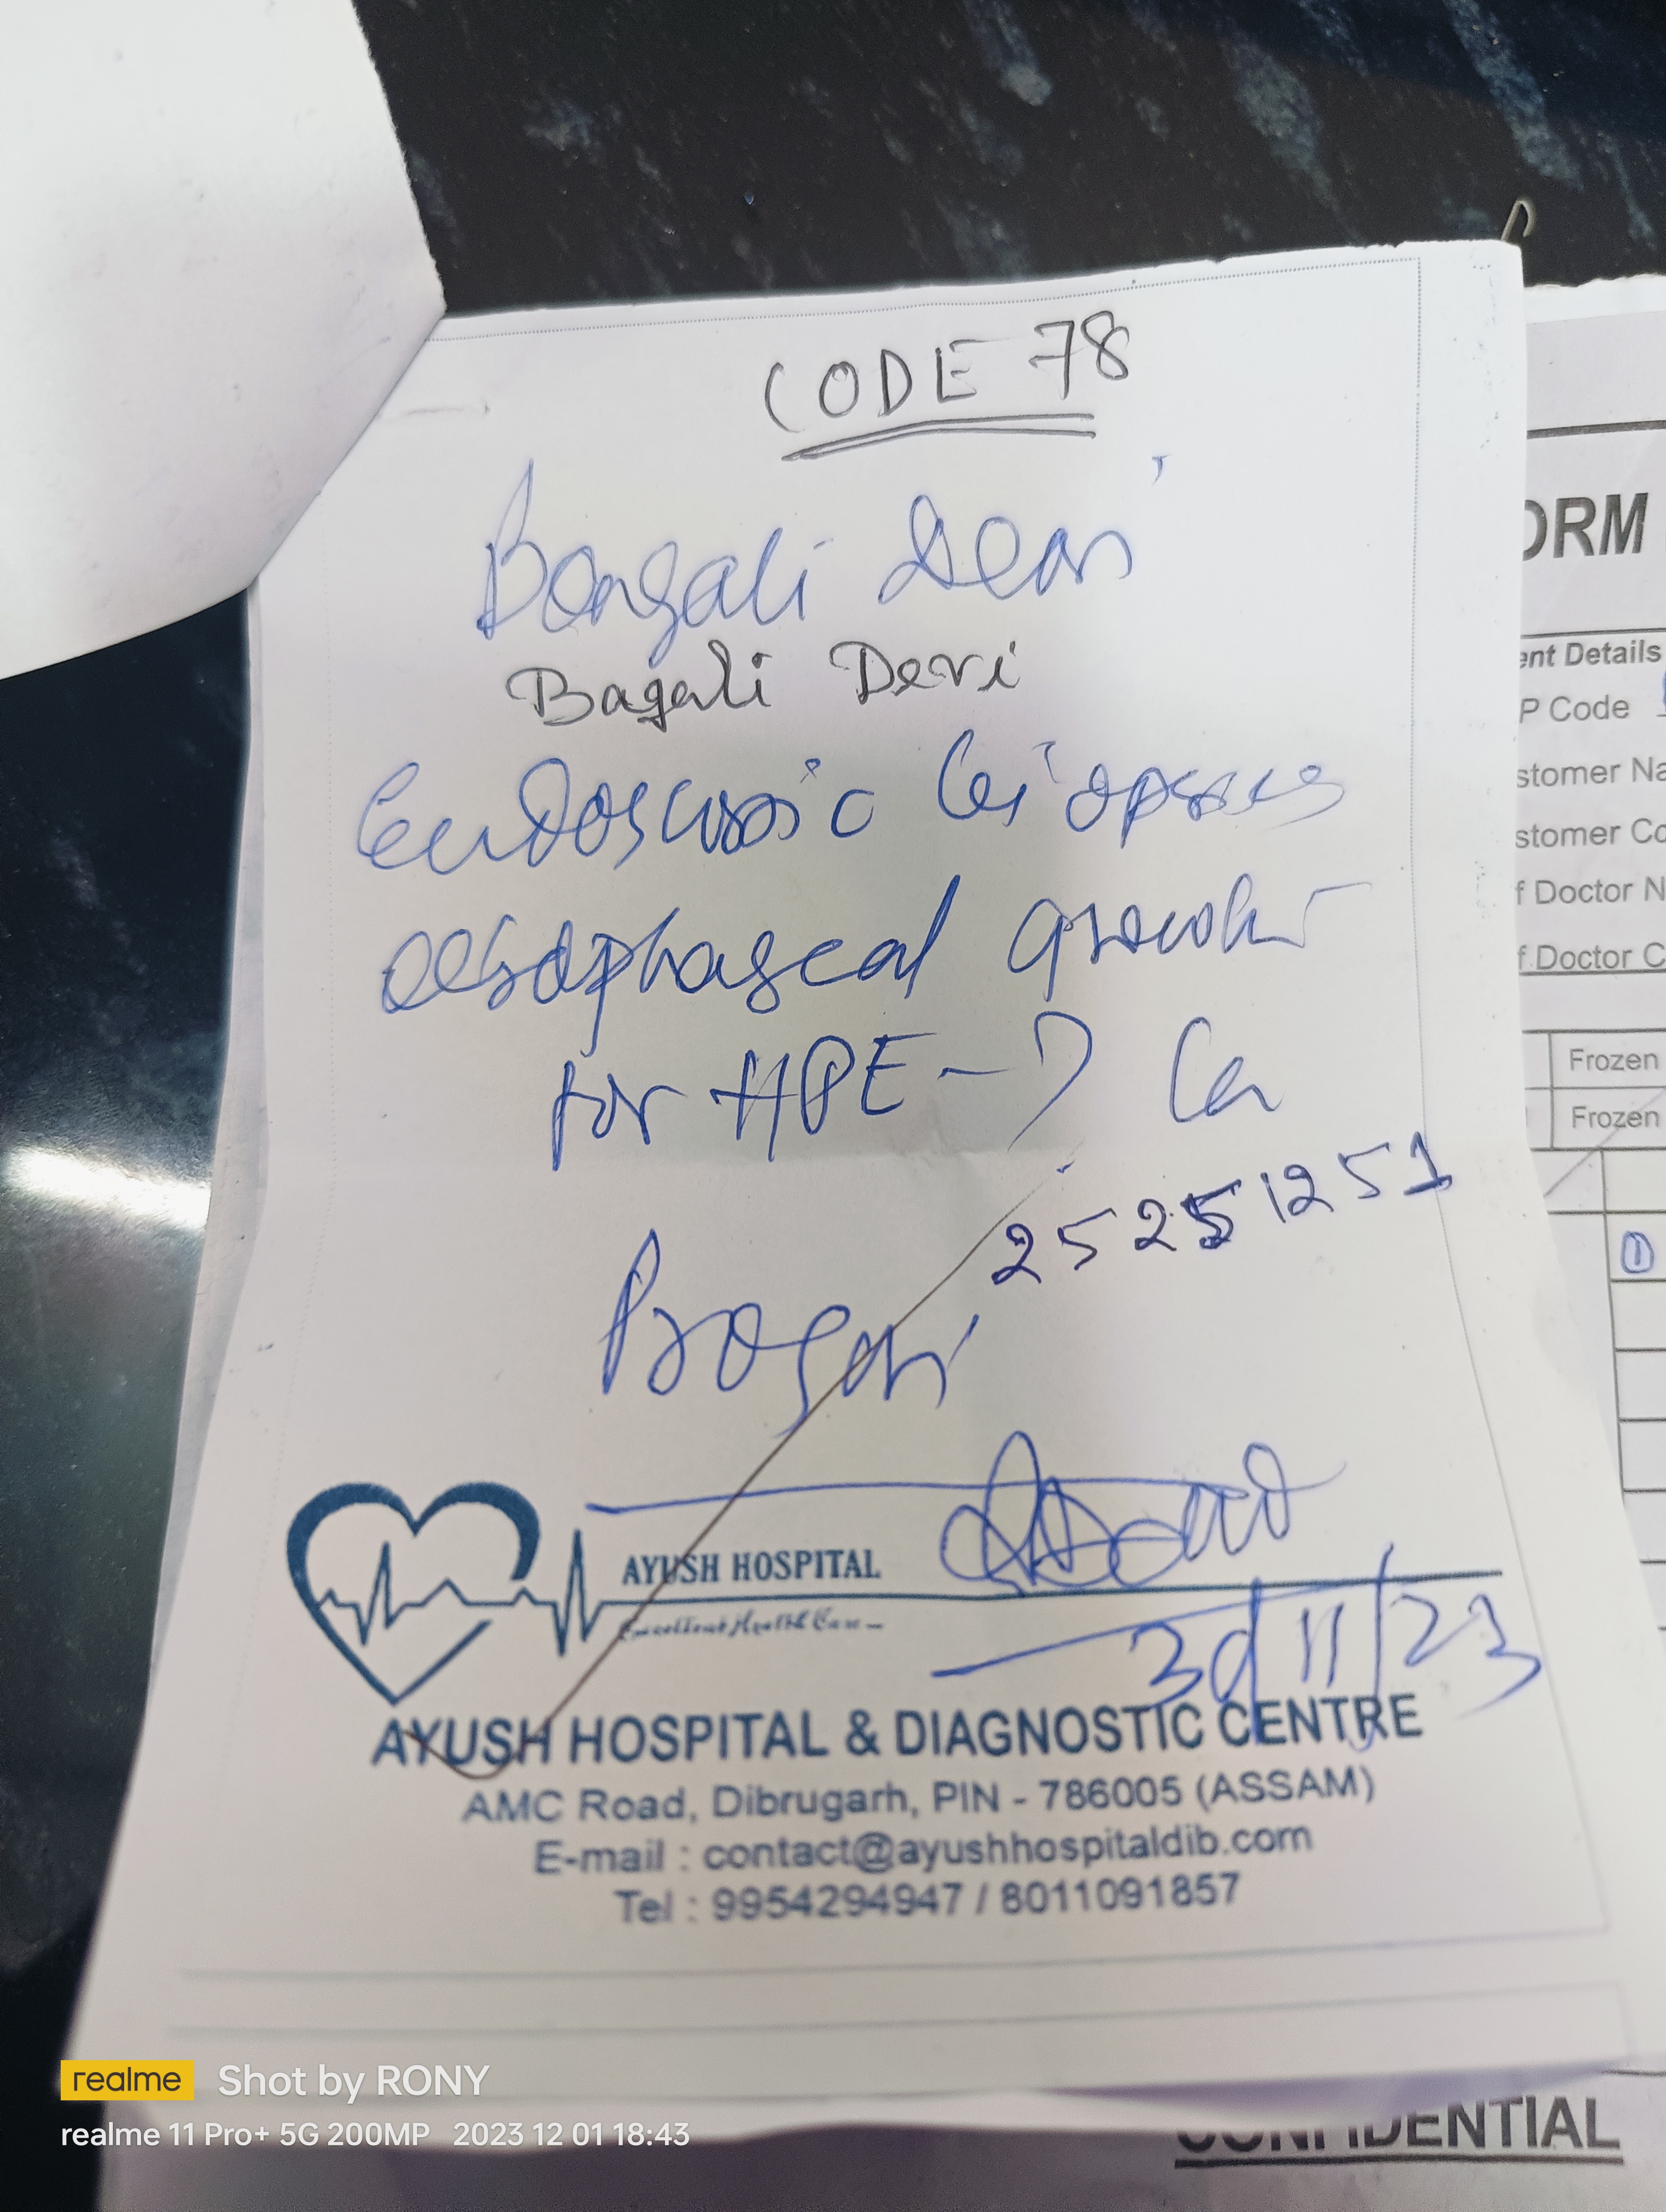 CODE 78
Bongali Devi
Bagali Devi
Endoscopic biopsies
oesophageal growth
for HPE - ? Ca
25251251
AYUSH HOSPITAL
Excellent Health Care
30/11/23
AYUSH HOSPITAL & DIAGNOSTIC CENTRE
AMC Road, Dibrugarh, PIN - 786005 (ASSAM)
E-mail : contact@ayushhospitaldib.com
Tel : 9954294947 / 8011091857
ORM
ent Details
P Code
stomer Na
stomer Co
f Doctor N
f Doctor C
Frozen
Frozen
1
CONFIDENTIAL
realme Shot by RONY
realme 11 Pro+ 5G 200MP 2023 12 01 18:43